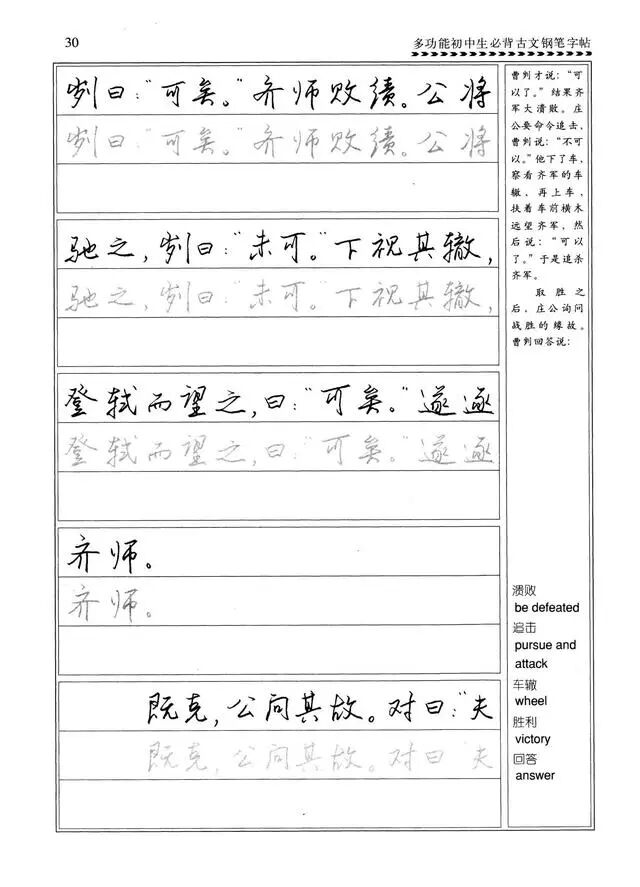 30
多功能初中生必背古文钢笔字帖
刿曰：“可矣。”齐师败绩。公将
刿曰：“可矣。”齐师败绩。公将
驰之，刿曰：“未可。”下视其辙，
驰之，刿曰：“未可。”下视其辙，
登轼而望之，曰：“可矣。”遂逐
登轼而望之，曰：“可矣。”遂逐
齐师。
齐师。
既克，公问其故。对曰：“夫
既克，公问其故。对曰：“夫
曹刿才说：“可
以了。”结果齐
军大溃败。庄
公要命令追击，
曹刿说：“不可
以。”他下了车，
察看齐军的车
辙，再上车，
扶着车前横木
远望齐军，然
后说：“可以
了。”于是追杀
齐军。
取胜之
后，庄公询问
战胜的缘故。
曹刿回答说：
溃败
be defeated
追击
pursue and
attack
车辙
wheel
胜利
victory
回答
answer